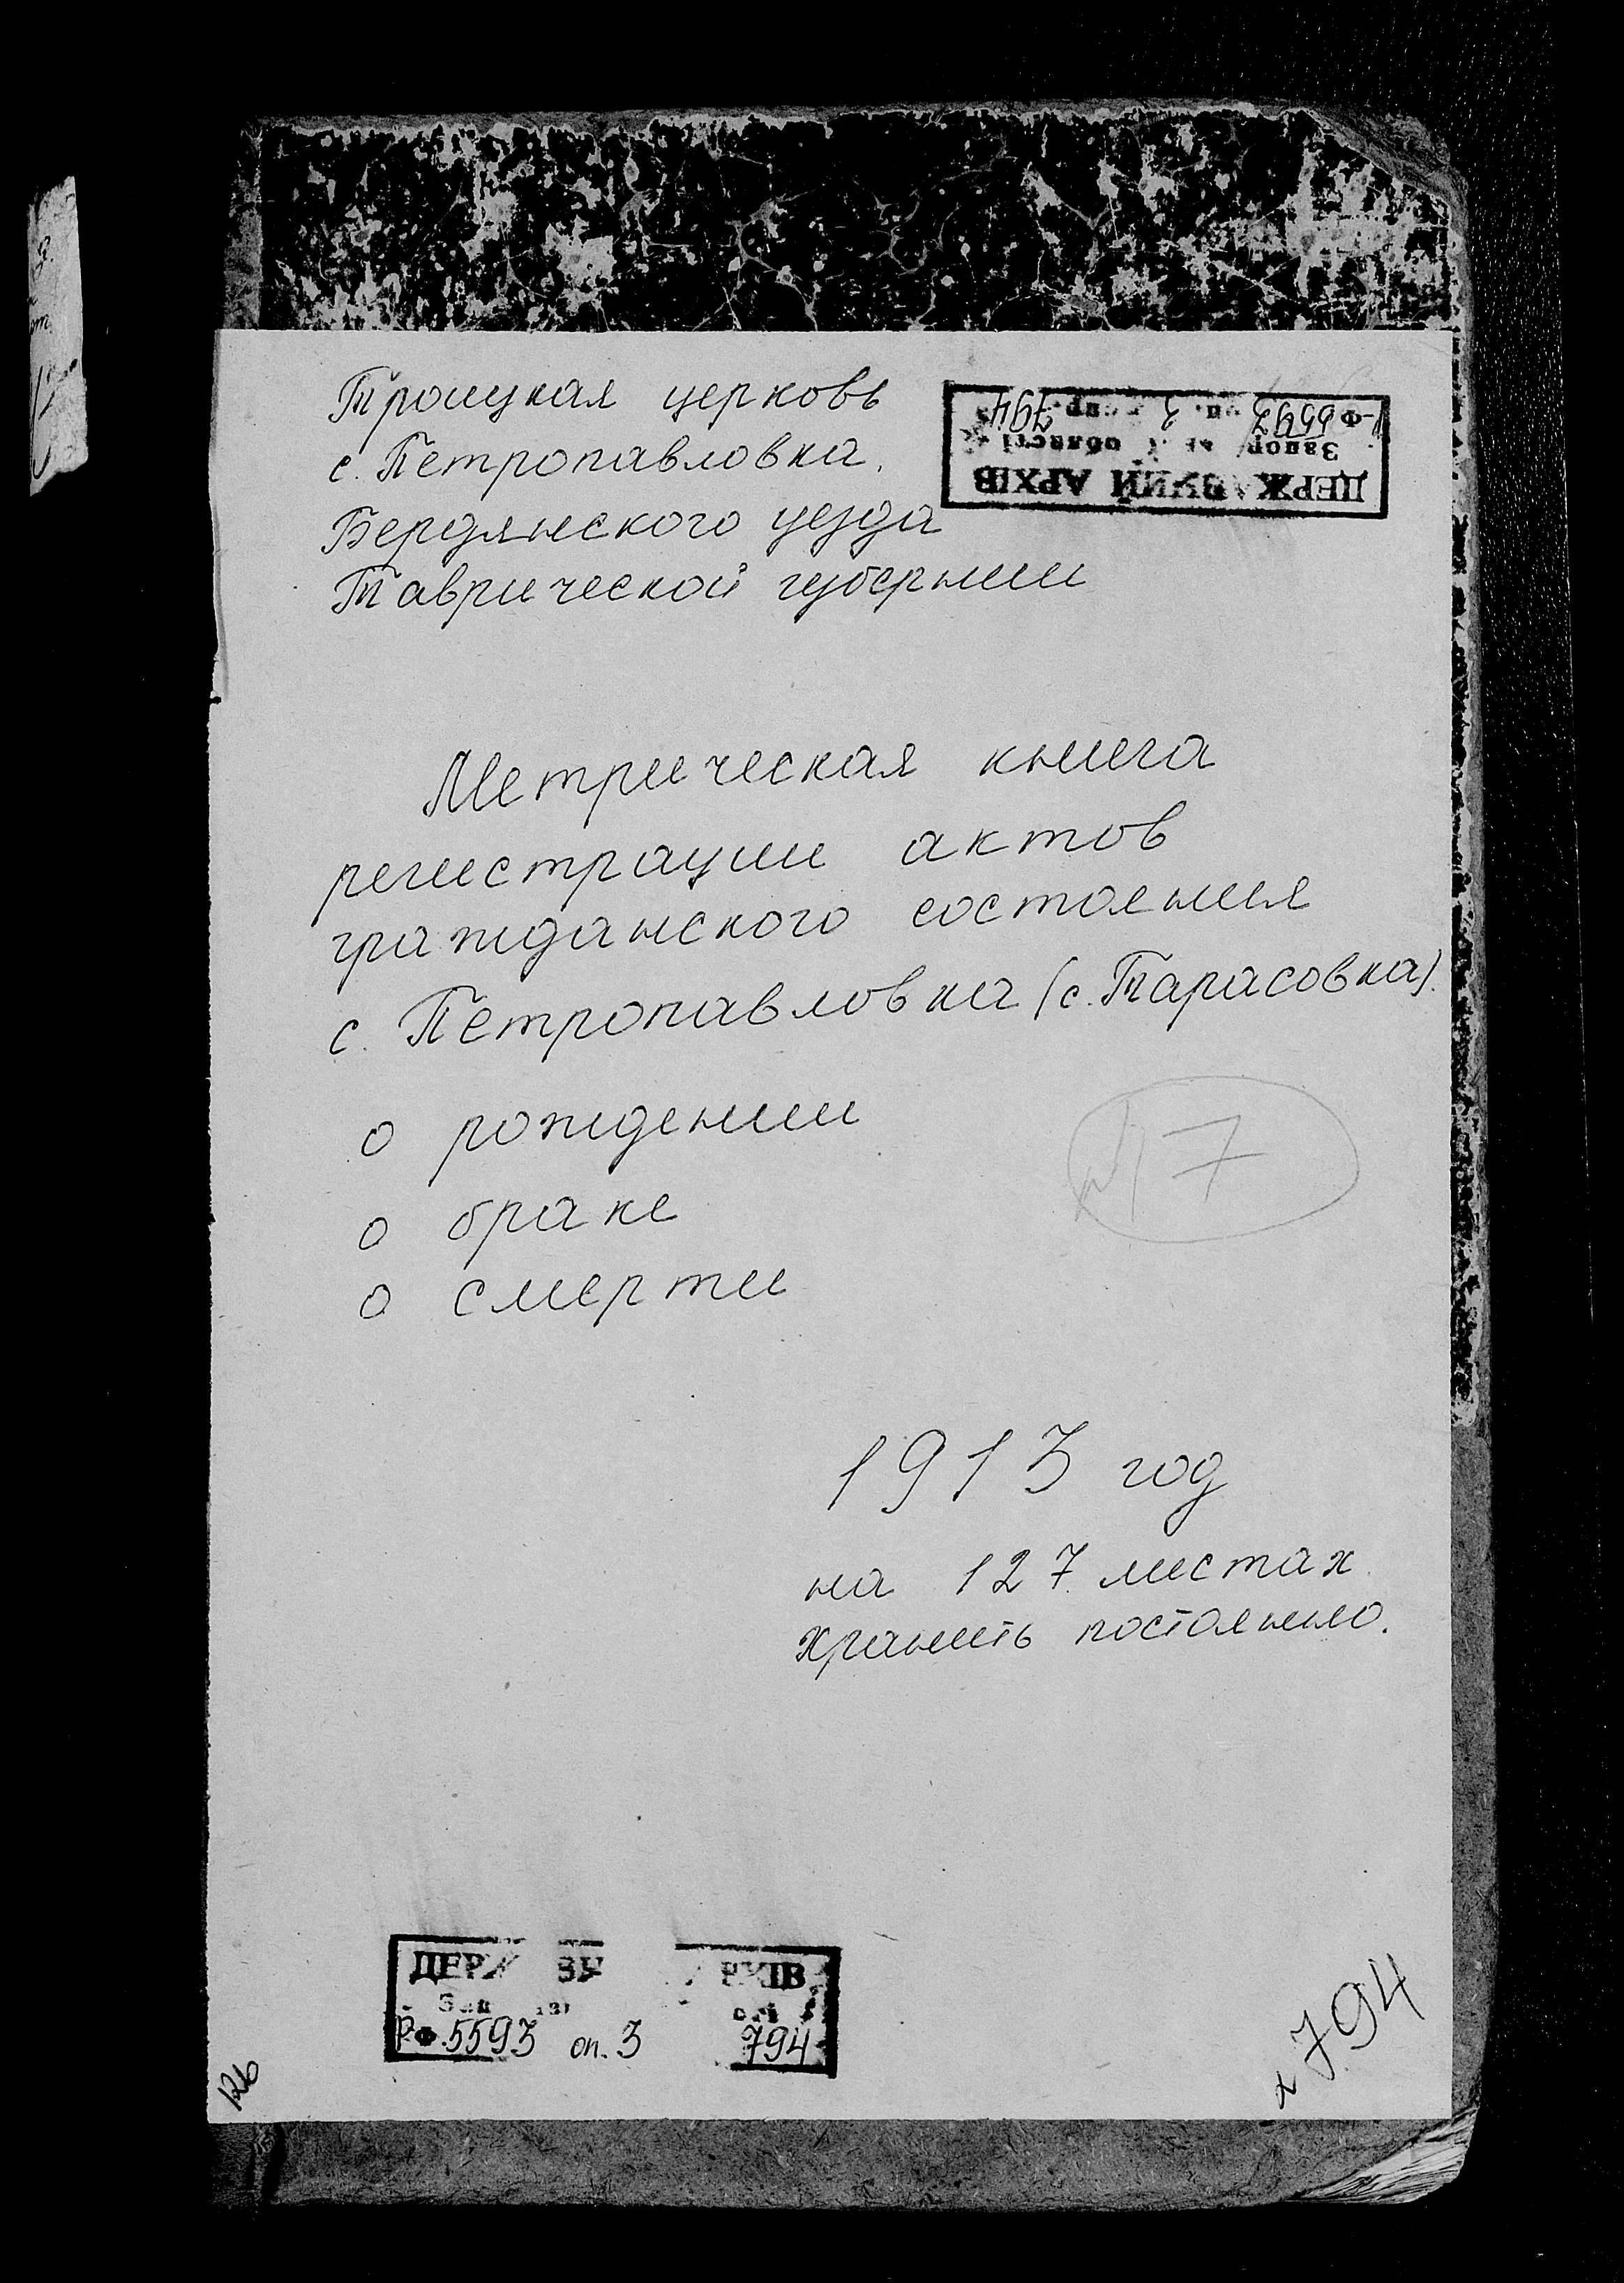 Троицкая церковь
с. Петропавловка.
Бердянского уезда
Таврической губернии
ДЕРЖАВНИЙ АРХІВ
області
Р-Ф 5593 оп. 3 спр. 794
Метрическая книга
регистрации актов
гражданского состояния
с. Петропавловка (с. Тарасовка).
о рождении
17
о браке
о смерти
1913 год
на 127 листах
хранить постоянно.
Р-Ф.5593 оп. 3 794
794
126